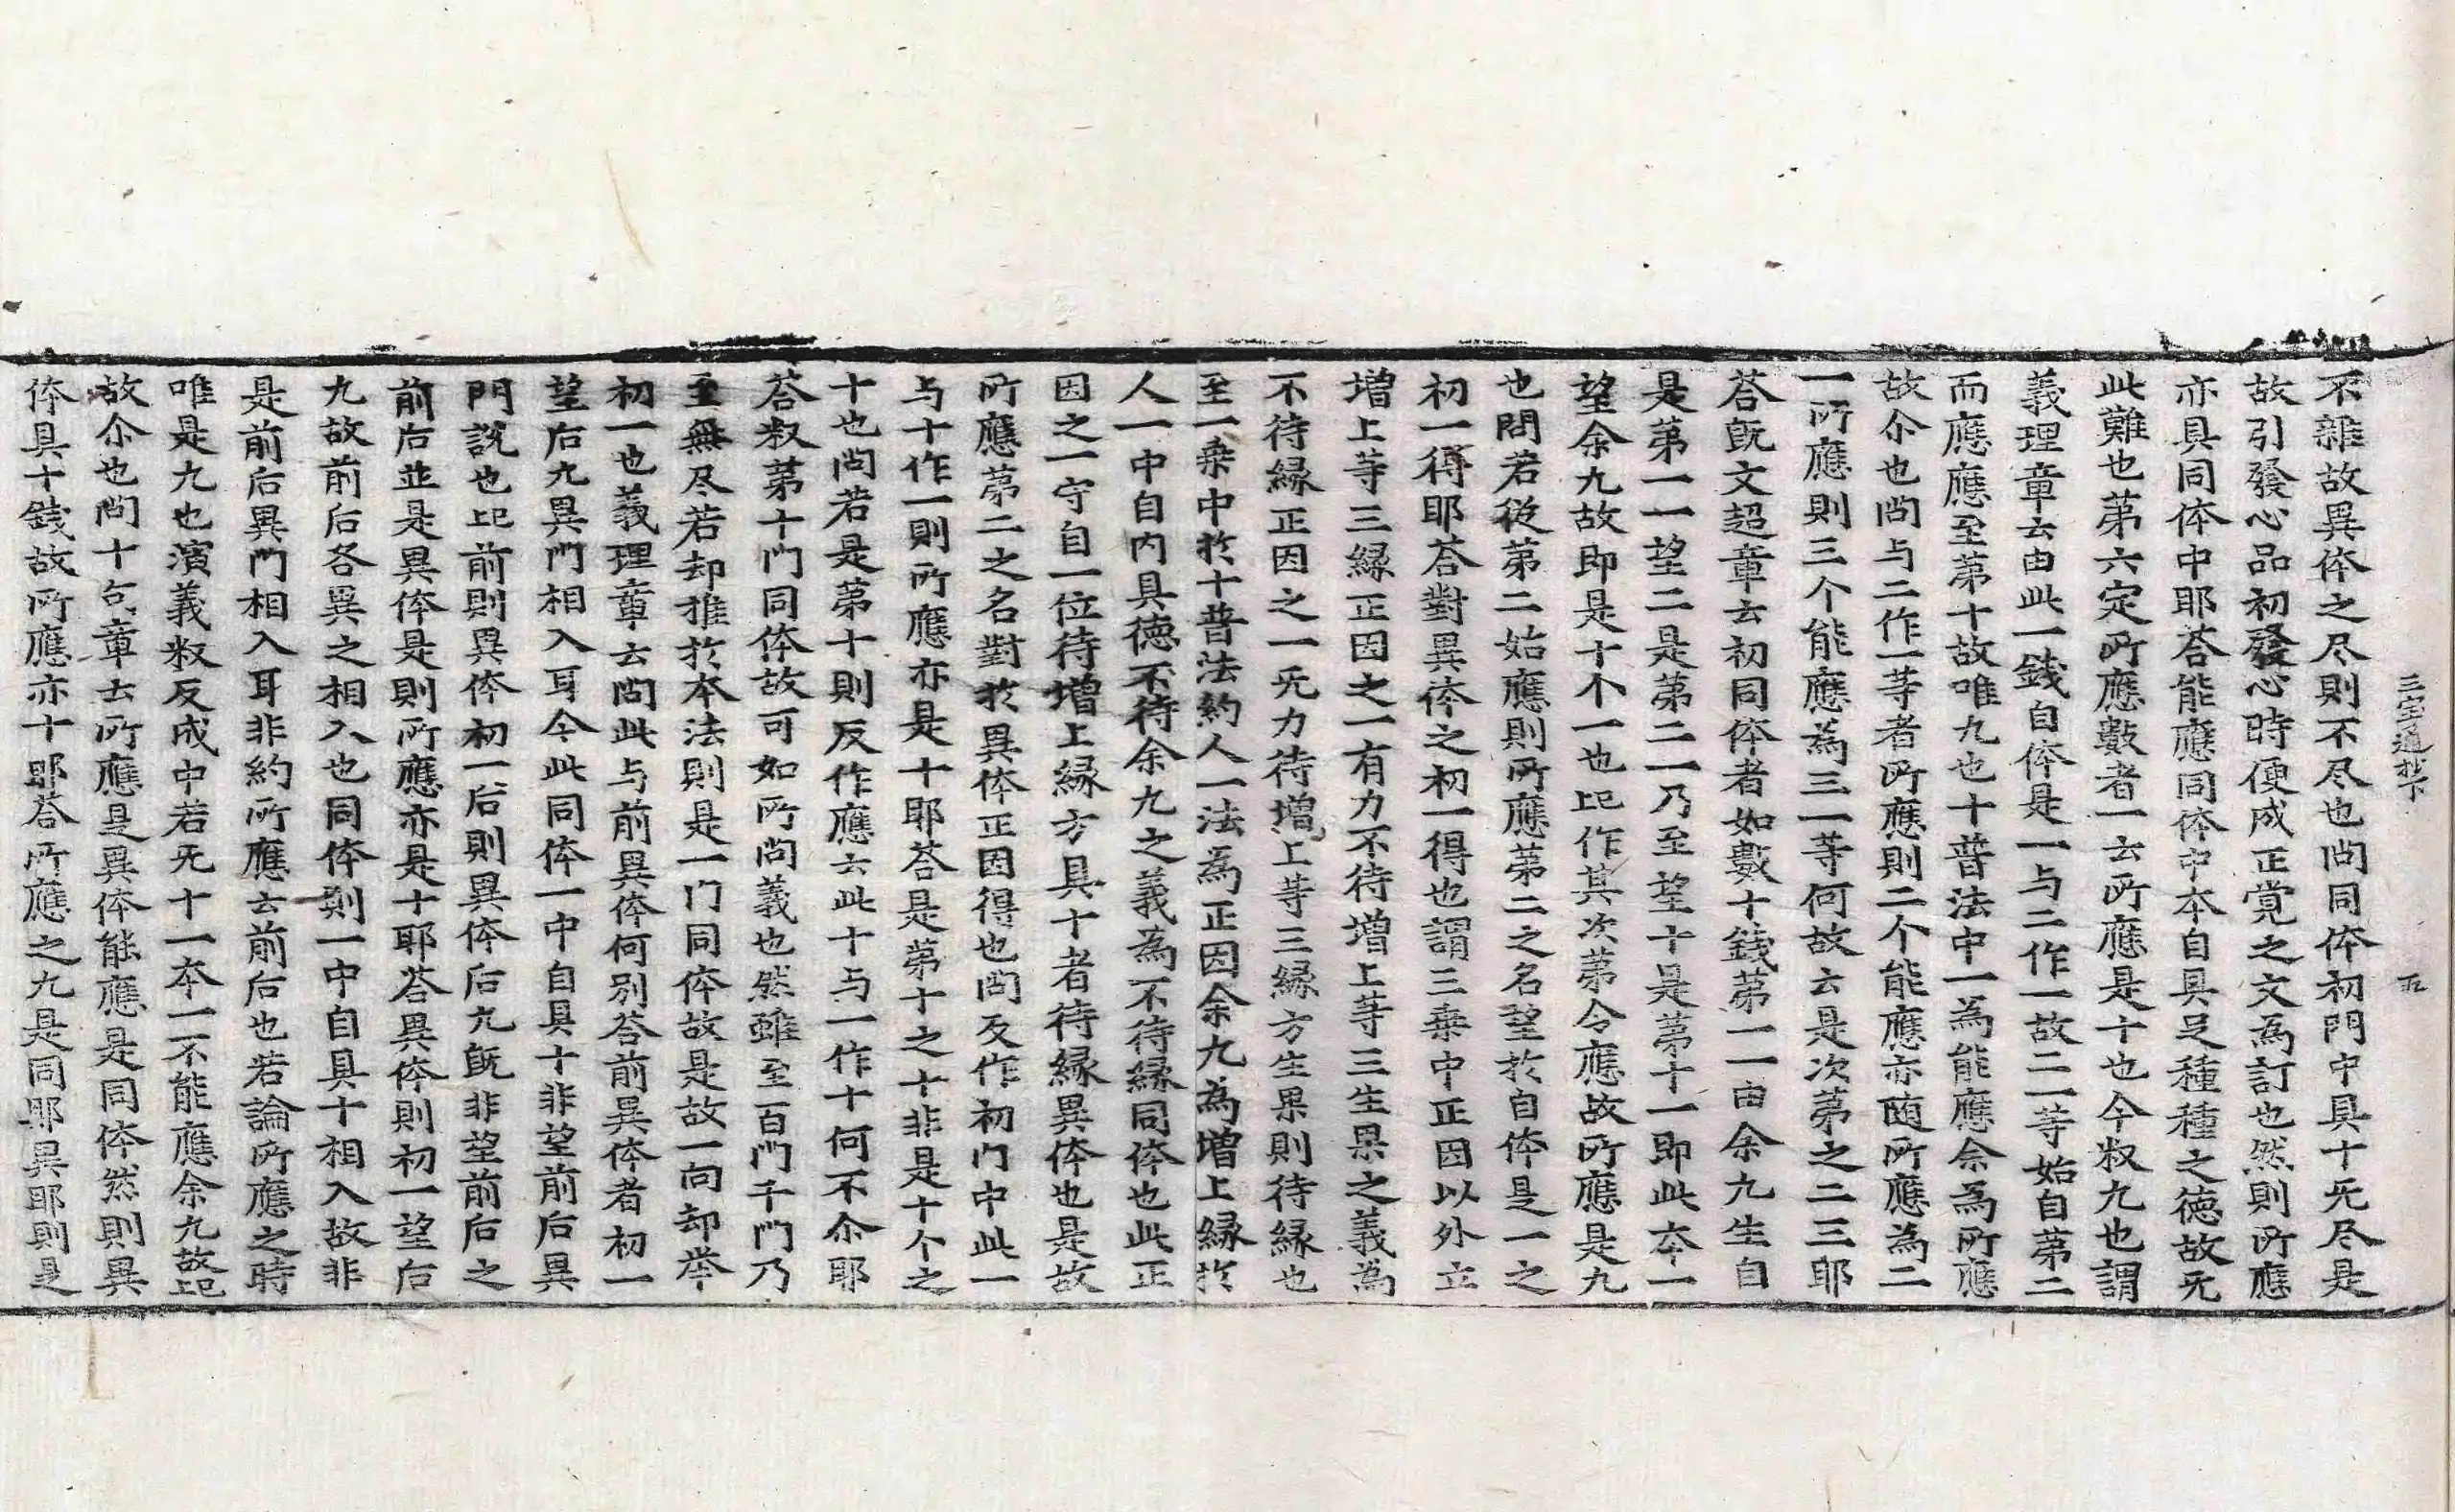 三宝通抄下　五
不雜故異体之尽則不尽也问同体初門中具十旡尽是
故引發心品初發心時便成正覚之文為訂也然則所應
亦具同体中耶荅能應同体中本自具足種種之徳故旡
此難也第六定所應數者一云所應是十也今叙九也謂
義理章云由此一錢自体是一与二作一故二一等始自第二
而應應至第十故唯九也十普法中一為能應余為所應
故尒也问与二作一等者所應則二个能應亦随所應為二
一所應則三个能應為三一等何故云是次第之二三耶
荅旣文超章云初同体者如數十錢第一一由余九生自
是第一一望二是第二一乃至望十是第十一即此本一
望余九故即是十个一也记作其次第令應故所應是九
也問若従第二始應則所應第二之名望扵自体是一之
初一得耶荅對異体之初一得也謂三乗中正因以外立
增上等三縁正因之一有力不待增上等三生果之義為
不待縁正因之一旡力待增上等三縁方生果則待縁也
至一乗中扵十普法約人一法為正因余九為增上縁扵
人一中自内具徳不待余九之義為不待縁同体也此正
因之一守自一位待增上縁方具十者待縁異体也是故
所應第二之名對扵異体正因得也问反作初门中此一
与十作一則所應亦是十耶荅是第十之十非是十个之
十也问若是第十則反作應云此十与一作十何不尒耶
荅叙第十门同体故可如所问義也然雖至百門千門乃
至無尽若却推扵本法則是一门同体故是故一向却举
初一也義理章云问此与前異体何別荅前異体者初一
望后九異门相入耳今此同体一中自具十非望前后異
門說也记前則異体初一后則異体后九旣非望前后之
前后並是異体是則所應亦是十耶荅異体則初一望后
九故前后各異之相入也同体則一中自具十相入故非
是前后異门相入耳非約所應云前后也若論所應之時
唯是九也演義叙反成中若旡十一本一不能應余九故记
故尒也问十句章云所應是異体能應是同体然則異
体具十錢故所應亦十耶荅所應之九是同耶異耶則是